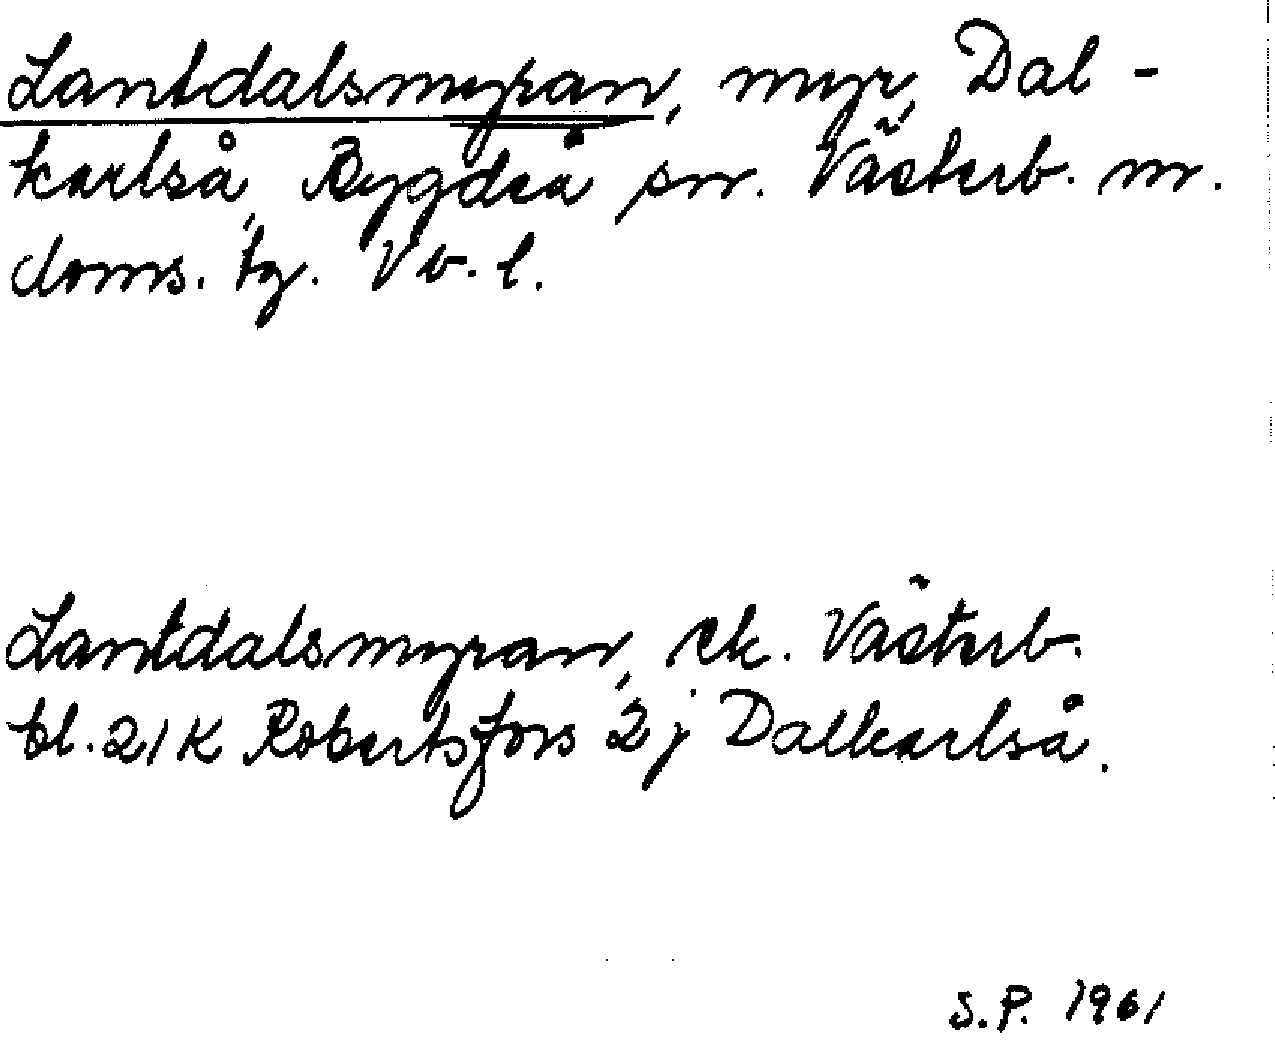 Lantdalsmyran, myr, Dal-
karlså, Bygdeå sn. Västerb. n.
doms. tg. Vb. l.
Lantdalsmyran, ek. Västerb.
bl. 21K Robertsfors 2 j Dalkarlså.
S.P. 1961